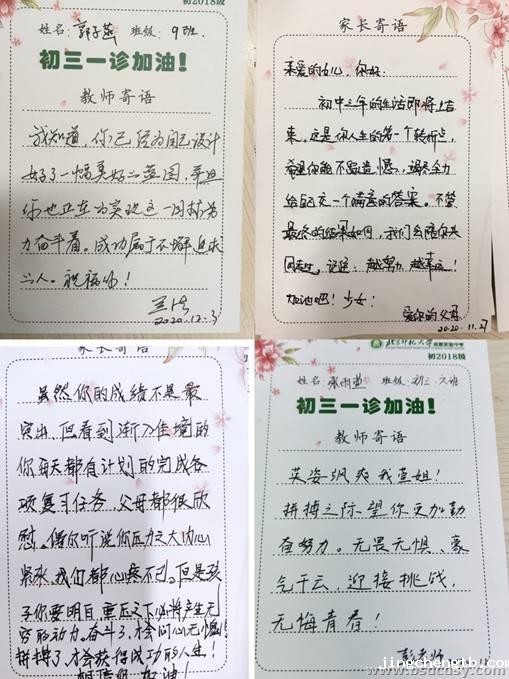 初2018级
姓名: 郭子 班级: 9班.
初三一诊加油!
教师寄语
我知道,你已经为自己设计
好了一幅美好的蓝图,并且
你也正在为实现这一目标努
力奋斗着。成功属于不懈追求
之人。祝福你!
2020.12.3
家长寄语
亲爱的女儿,你好:
初中三年的生活即将结
束。这是你人生的第一个转折点,
希望你能不留遗憾,竭尽全力
给自己交一个满意的答案。不管
最终的结果如何,我们会陪你共
同走过,记住:越努力,越幸运!
加油吧!少女!
爱你的父母
2020.11.27
家长寄语
虽然你的成绩不是最
突出,但看到渐入佳境的
你每天都有计划的完成各
项复习任务,父母都很欣
慰。偶尔听说你压力之大内心
紧张,我们都心疼不已。但是孩
子你要明白,重压之下必将产生无
穷的动力。奋斗了,才会问心无愧!
拼搏了,才会获得成功的人生!
相信你,加油!
北京师范大学
初2018级
姓名: 班级: 初三.9班
初三一诊加油!
教师寄语
英姿飒爽我萱姐!
拼搏之际,望你更加勤
奋努力。无畏无惧、豪
气干云,迎接挑战,
无悔青春!
彭老师
www.bsdcdsy.com
jingchengtb.com